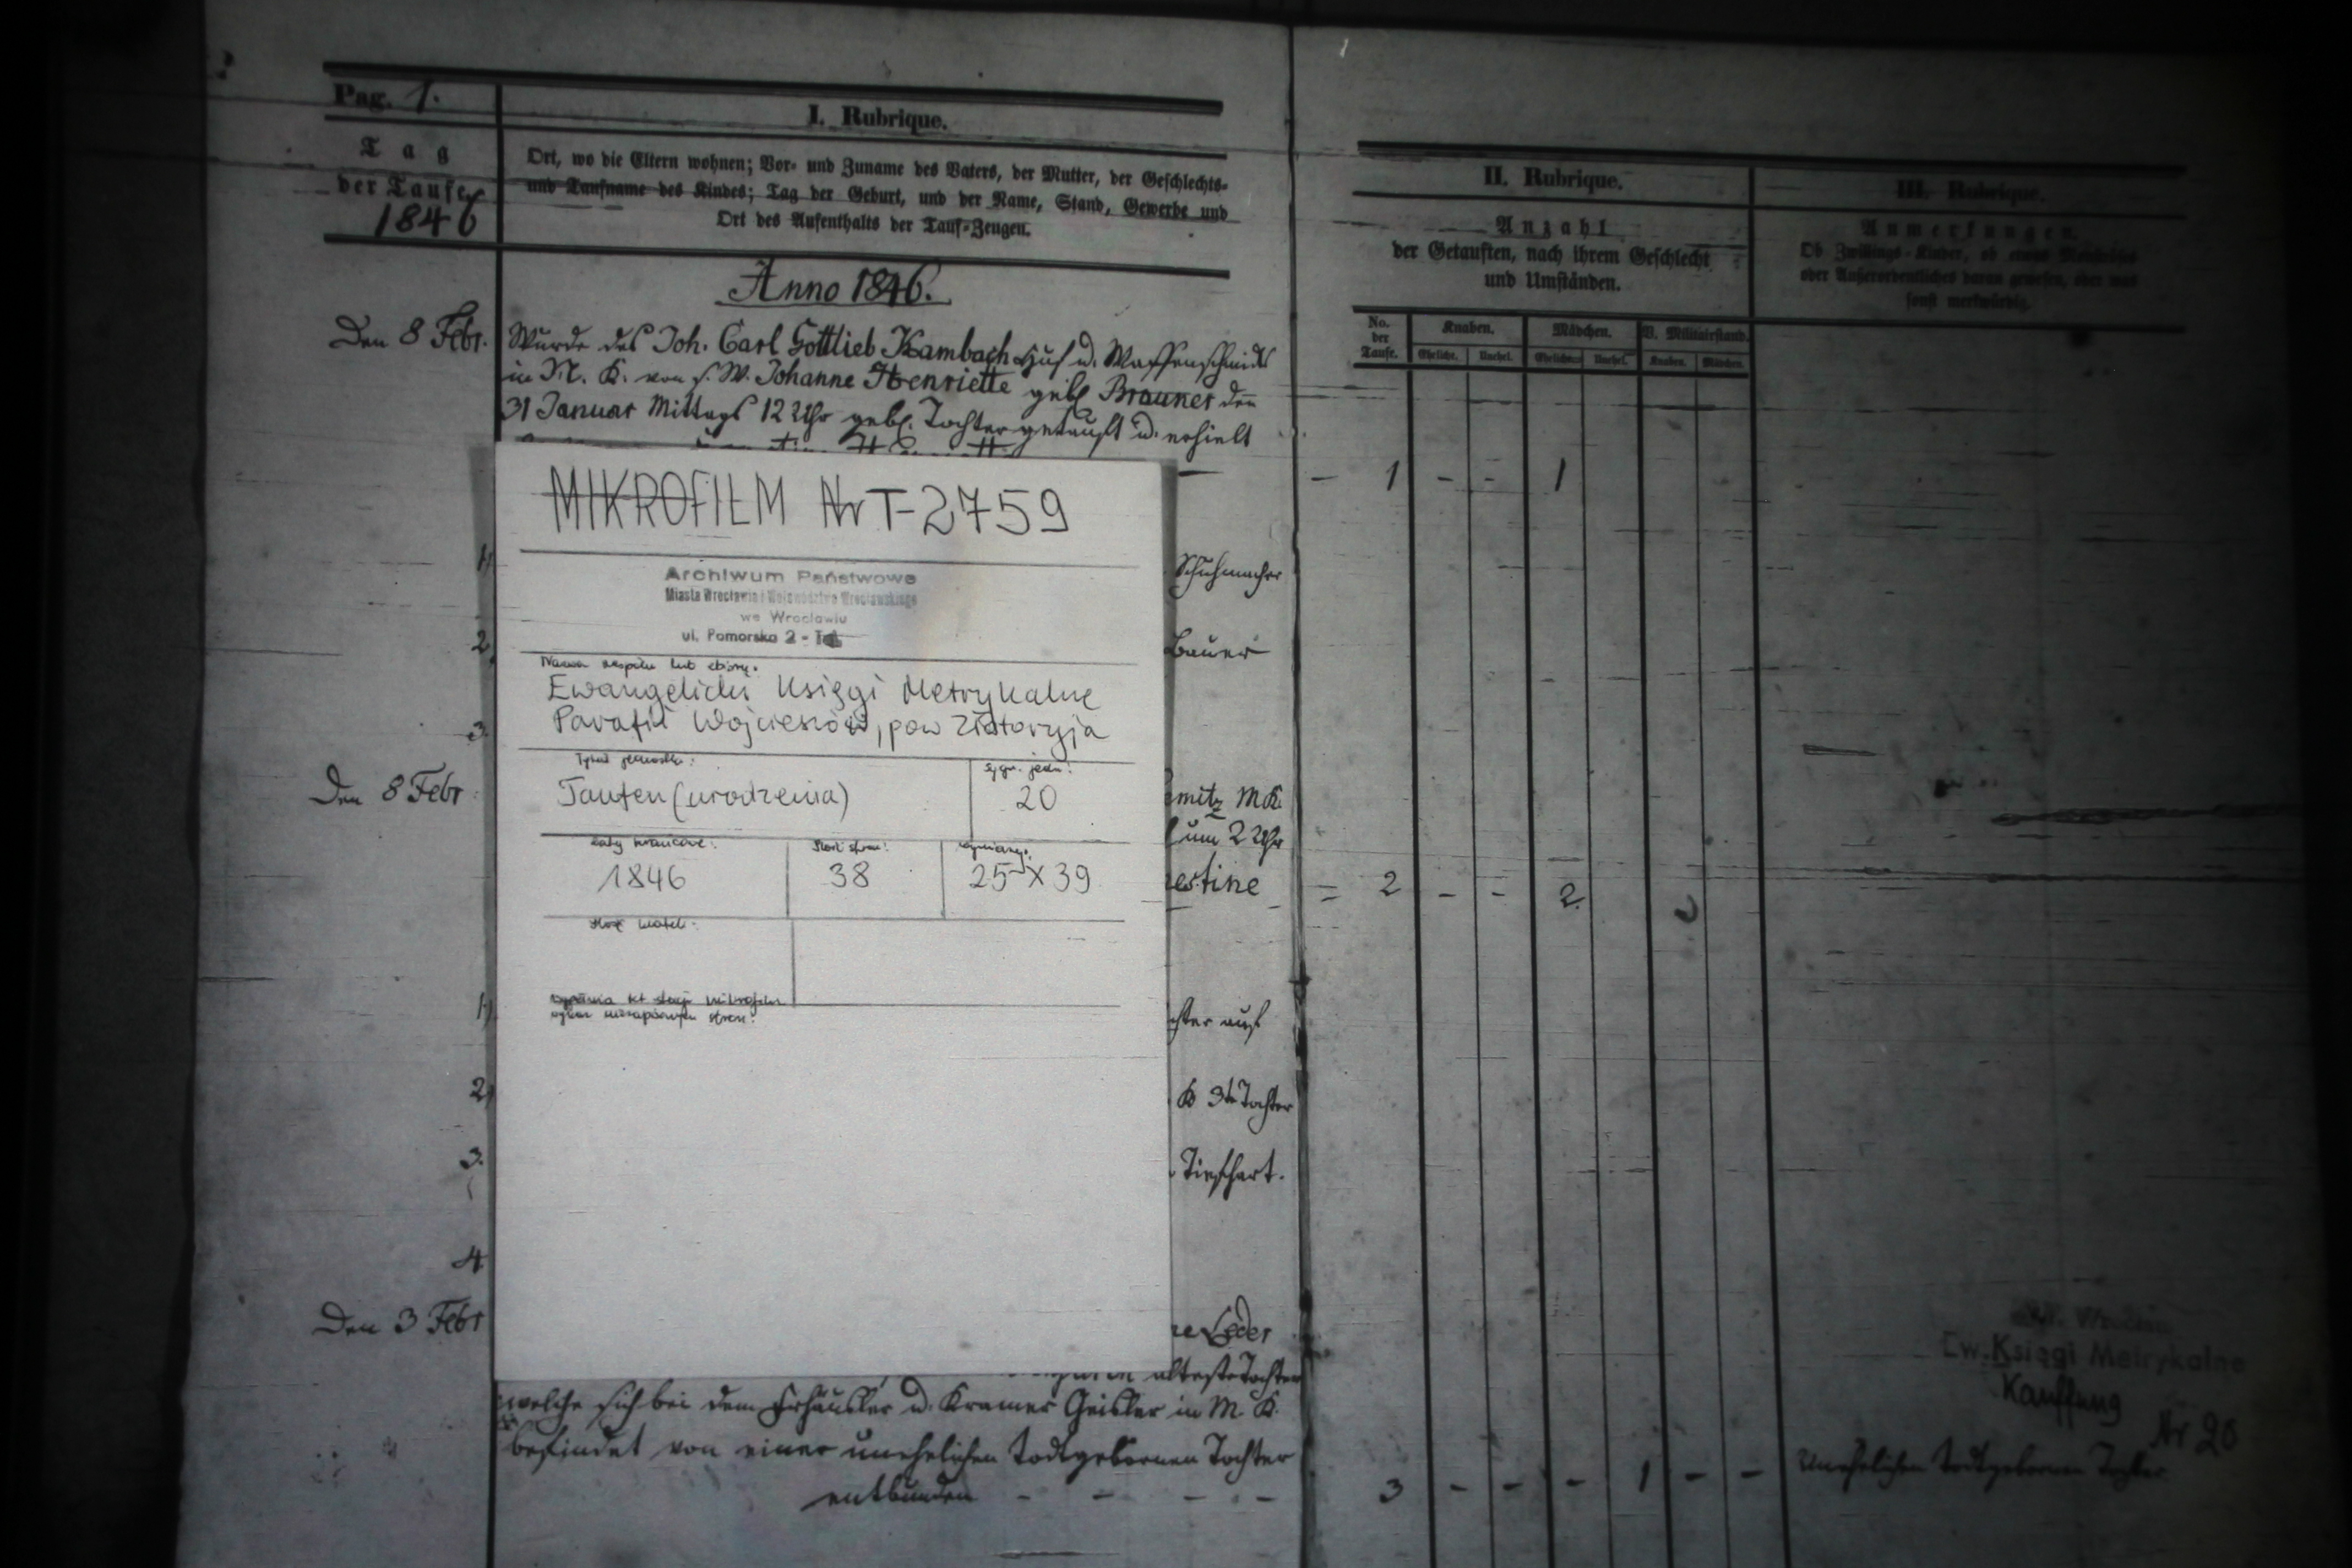 Pag. 1.
Tag
der Taufe
1846
I. Rubrique.
Ort, wo die Eltern wohnen; Vor- und Zuname des Vaters, der Mutter, der Geschlechts-
und Taufname des Kindes; Tag der Geburt, und der Name, Stand, Gewerbe und
Ort des Aufenthalts der Tauf-Zeugen.
Anno 1846.
Den 8 Febr.
Wurde des Joh. Carl Gottlieb Kambach Huf u. Waffenschmidt
in M. K. von s. W. Johanne Henriette geb. Brauner den
31 Januar Mittags 12 Uhr geb. Tochter getauft u. erhielt
MIKROFILM Nr T-2759
Archiwum Państwowe
Miasta Wrocławia i Województwa Wrocławskiego
we Wrocławiu
ul. Pomorska 2 -
Nazwa zespołu lub zbioru:
Ewangelickie Księgi Metrykalne
Parafii Wojcieszów, pow Złotoryja
Tytuł jednostki:
Sygn. jedn:
Taufen (urodzenia)
20
Daty krańcowe:
Ilość stron:
Wymiary:
1846
38
25 X 39
Ilość klatek:
1.
Schuhmacher
2.
Bauer
3.
Den 8 Febr
mitz M.K.
um 2 Uhr
estine
1.
auf
2.
K 3te Tochter
3.
Tiefhart.
4
Den 3 Febr
Leder
älteste Tochter
welche sich bei dem Freihäusler u. Kramer Geisler in M. K.
befindet von einer unehelichen todtgebornen Tochter
entbunden - - - -
II. Rubrique.
Anzahl
der Getauften, nach ihrem Geschlecht
und Umständen.
No.
der
Taufe.
Knaben.
Mädchen.
V. Militairstand.
Eheliche.
Unehel.
Eheliche.
Unehel.
Knaben.
Mädchen.
- 1 - - 1
= 2 - - 2.
3 - - - 1 - -
III. Rubrique.
Anmerkungen.
Ob Zwillings-Kinder, ob etwas Monströses
oder Außerordentliches daran gewesen, oder was
sonst merkwürdig.
Ew. Księgi Metrykalne
Kauffung
Nr 20
Unehelichen todtgebornen Tochter